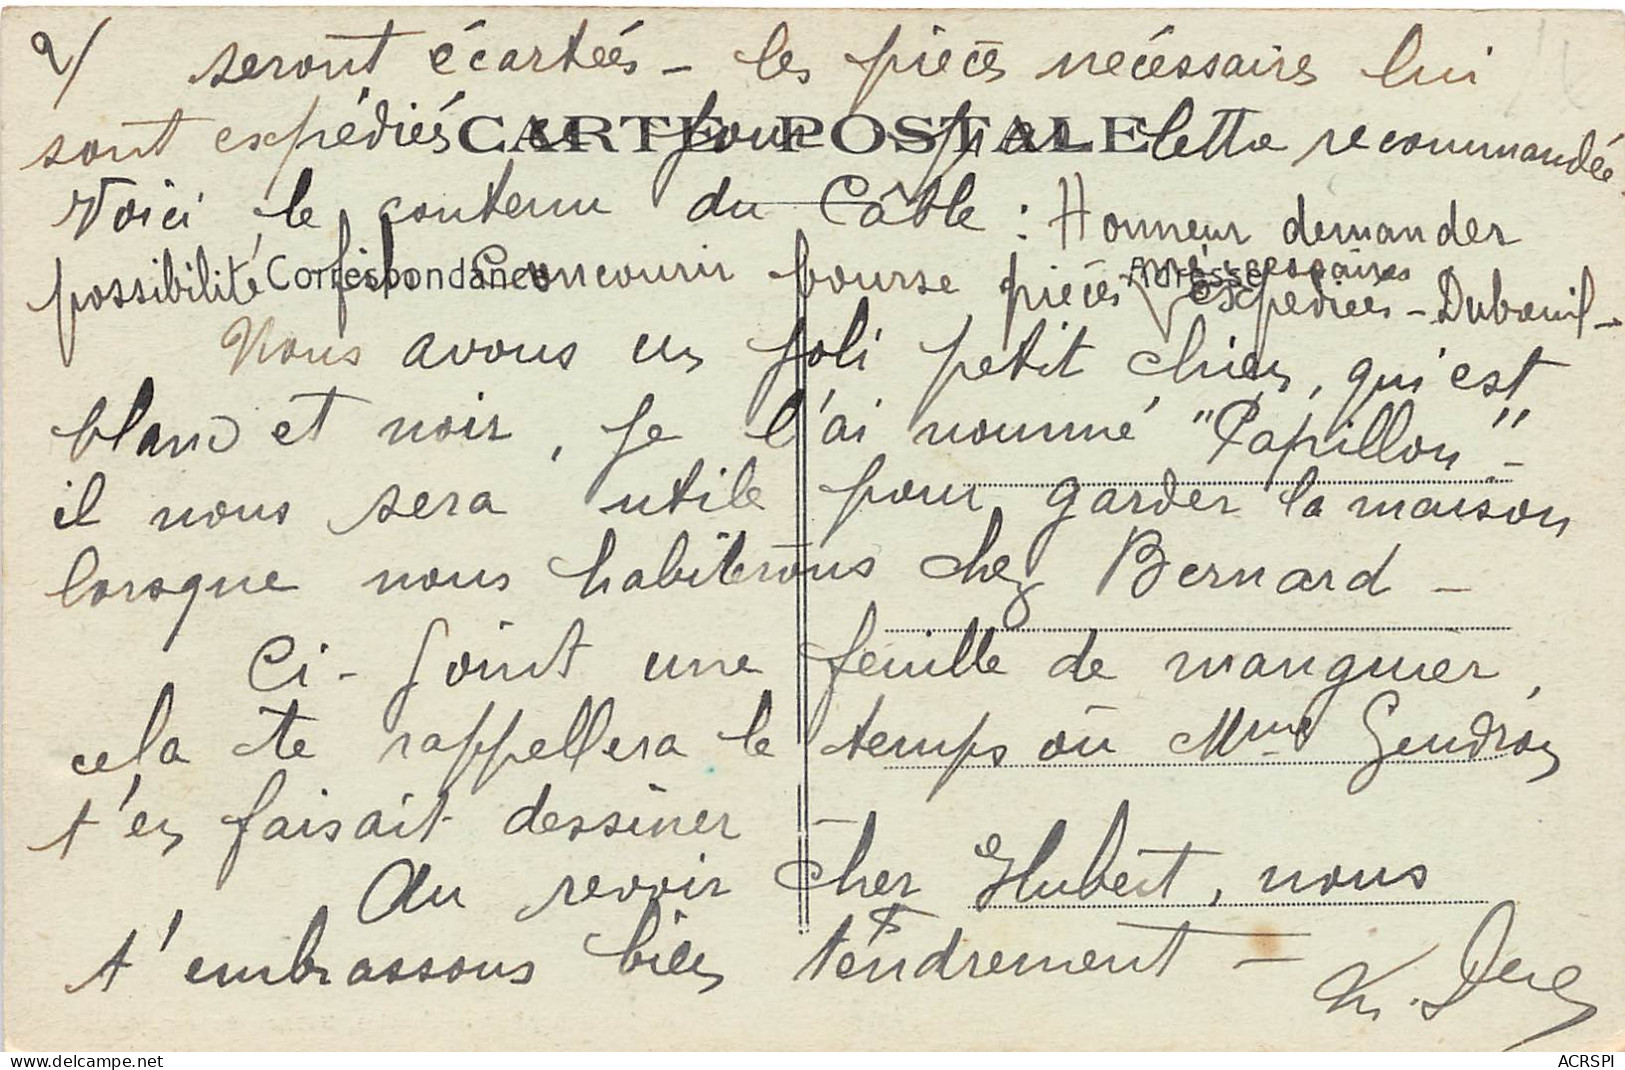 2/ seront écartées - les pièces nécessaires lui
sont expédiés ce jour par lettre recommandée.
CARTE POSTALE
Voici le contenu du Câble : Honneur demander
possibilité fils concourir bourse pièces nécessaires expédiées - Dubeuil -
Correspondance
Adresse
Nous avons un joli petit chien, qui est
blanc et noir, je l'ai nommé "Papillon" -
il nous sera utile pour garder la maison
lorsque nous habiterons chez Bernard -
Ci-joint une feuille de manguier,
cela te rappellera le temps où Mme Gendron
t'en faisait dessiner -
Au revoir cher Hubert, nous
t'embrassons bien tendrement -
delcampe.net
ACRSPI